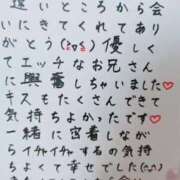 遠いところから会
いにきてくれてあり
がとう(
優しく
てエッチなお兄さん
に興奮しちゃいました♥
キスもたくさんできて
気持ちよかったです♡
一緒に密着しなが
らイチャイチャする気持
ちよくて幸せでした(